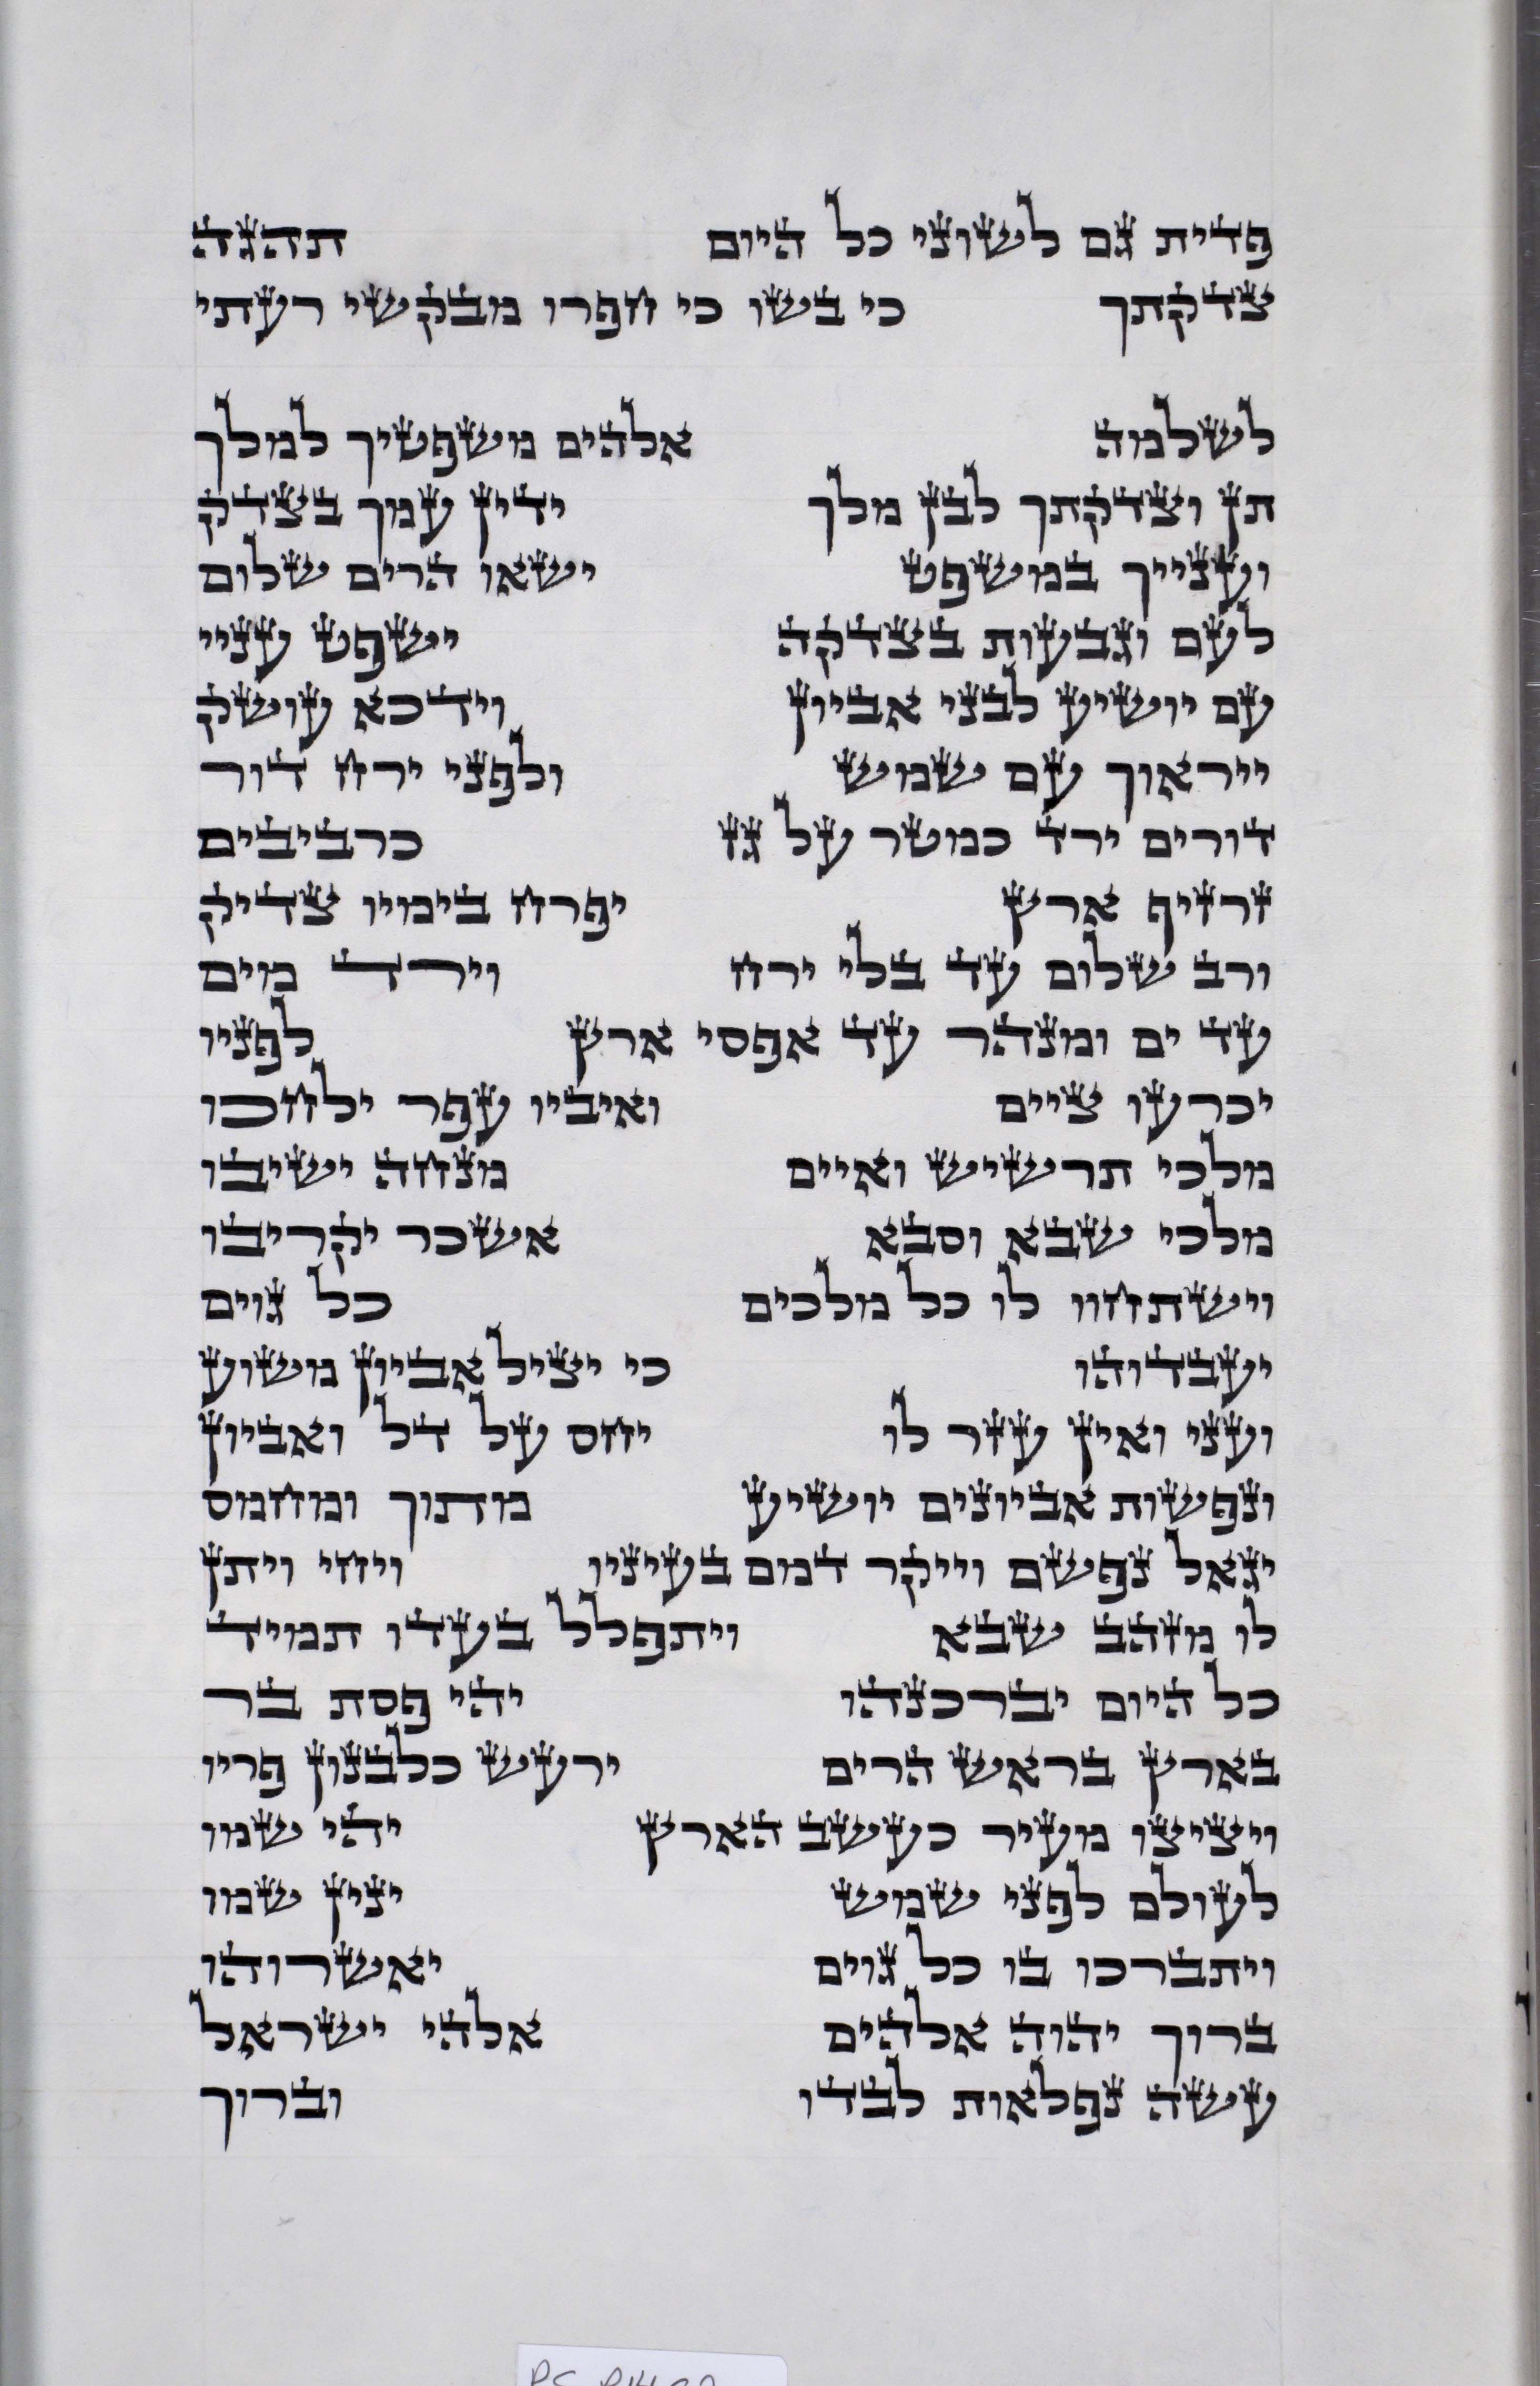 פדית גם לשוני כל היום תהגה
צדקתך כי בשו כי חפרו מבקשי רעתי
לשלמה אלהים משפטיך למלך
תן וצדקתך לבן מלך ידין עמך בצדק
וענייך במשפט ישאו הרים שלום
לעם וגבעות בצדקה ישפט עניי
עם יושיע לבני אביון וידכא עושק
ייראוך עם שמש ולפני ירח דור
דורים ירד כמטר על גז כרביבים
זרזיף ארץ יפרח בימיו צדיק
ורב שלום עד בלי ירח וירד מים
עד ים ומנהר עד אפסי ארץ לפניו
יכרעו ציים ואיביו עפר ילחכו
מלכי תרשיש ואיים מנחה ישיבו
מלכי שבא וסבא אשכר יקריבו
וישתחוו לו כל מלכים כל גוים
יעבדוהו כי יציל אביון משוע
ועני ואין עזר לו יחס על דל ואביון
ונפשות אביונים יושיע מתוך ומחמס
יגאל נפשם וייקר דמם בעיניו ויחי ויתן
לו מזהב שבא ויתפלל בעדו תמיד
כל היום יברכנהו יהי פסת בר
בארץ בראש הרים ירעש כלבנון פריו
ויציצו מעיר כעשב הארץ יהי שמו
לעולם לפני שמש ינין שמו
ויתברכו בו כל גוים יאשרוהו
ברוך יהוה אלהים אלהי ישראל
עשה נפלאות לבדו וברוך